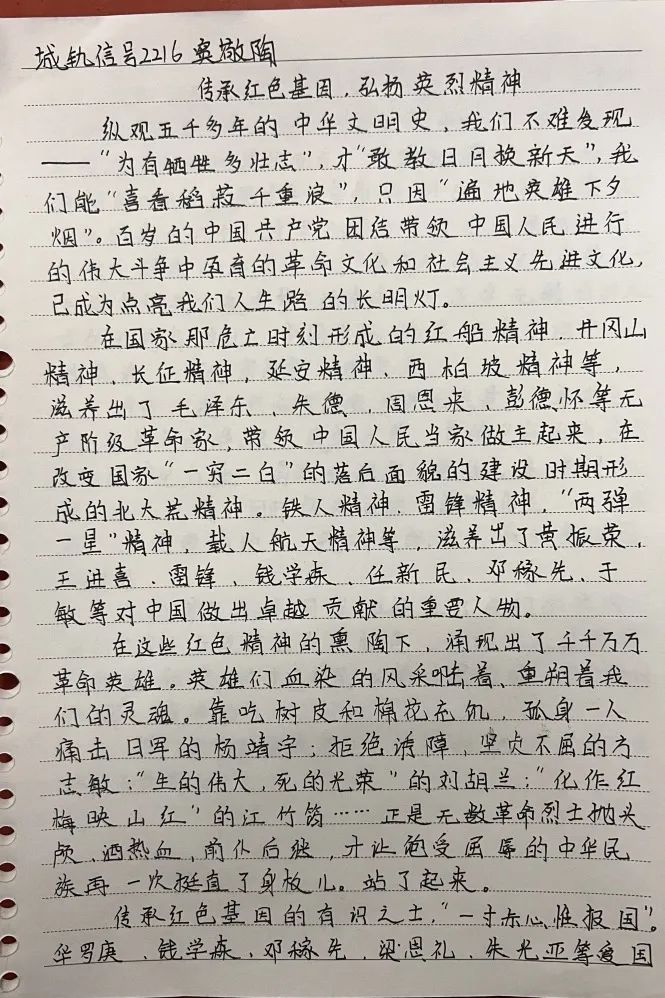 城轨信号2216 窦敬陶
传承红色基因，弘扬英烈精神
纵观五千多年的中华文明史，我们不难发现
——“为有牺牲多壮志”，才“敢教日月换新天”，我
们能“喜看稻菽千重浪”，只因“遍地英雄下夕
烟”。百岁的中国共产党团结带领中国人民进行
的伟大斗争中孕育的革命文化和社会主义先进文化，
已成为点亮我们人生路的长明灯。
在国家那危亡时刻形成的红船精神、井冈山
精神、长征精神，延安精神、西柏坡精神等，
滋养出了毛泽东、朱德、周恩来、彭德怀等无
产阶级革命家，带领中国人民当家做主起来，在
改变国家“一穷二白”的落后面貌的建设时期形
成的北大荒精神。铁人精神、雷锋精神，“两弹
一星”精神、载人航天精神等，滋养出了黄振荣，
王进喜、雷锋、钱学森、任新民、邓稼先、于
敏等对中国做出卓越贡献的重要人物。
在这些红色精神的熏陶下，涌现出了千千万万
革命英雄。英雄们血染的风采感着、重朔着我
们的灵魂。靠吃树皮和棉花充饥，孤身一人
痛击日军的杨靖宇；拒绝诱障，坚贞不屈的方
志敏；“生的伟大，死的光荣”的刘胡兰；“化作红
梅映山红”的江竹筠……正是无数革命烈士抛头
颅、洒热血，前仆后继，才让饱受屈辱的中华民
族再一次挺直了身板儿。站了起来。
传承红色基因的有识之士，“一寸赤心惟报国”。
华罗庚、钱学森、邓稼先、梁思礼、朱光亚等爱国